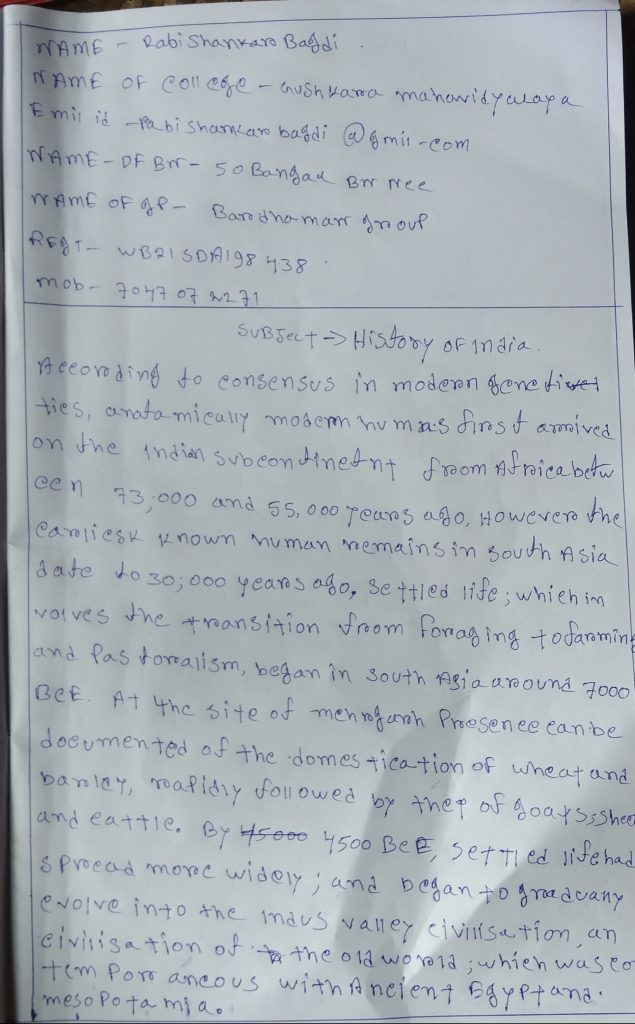 NAME - Rabi Shankaro Bagdi.
NAME OF College - Gushkara mahavidyalaya
Emil id - Rabi Shankar bagdi @gmil-com
NAME - OF Bn - 50 Bangal Bn Ncc
NAME OF gp - Barodhaman group
REGT - WB21SDA198438.
mob - 7047072271
SUBJect → History OF India.
According to consensus in modern gene
tics, anatamically modern humans first arrived
on the Indian subcontinetnt from Africa betw
een 73,000 and 55,000 years ago, However the
earliesk known human remains in South Asia
date to 30,000 years ago, settled life; which in
volves the transition from foraging to farming
and Pastoralism, began in South Asia around 7000
BCE. At the site of mehrgarh Presence can be
documented of the domestication of wheat and
barley, rapidly followed by of goats, sheep
and cattle. By 4500 BCE, settled life had
spread more widely; and began to gradually
evolve into the Indus valley civilisation, an
civilisation of the old world; which was co
tem Poraneous with Ancient Egypt and.
mesopotamia.